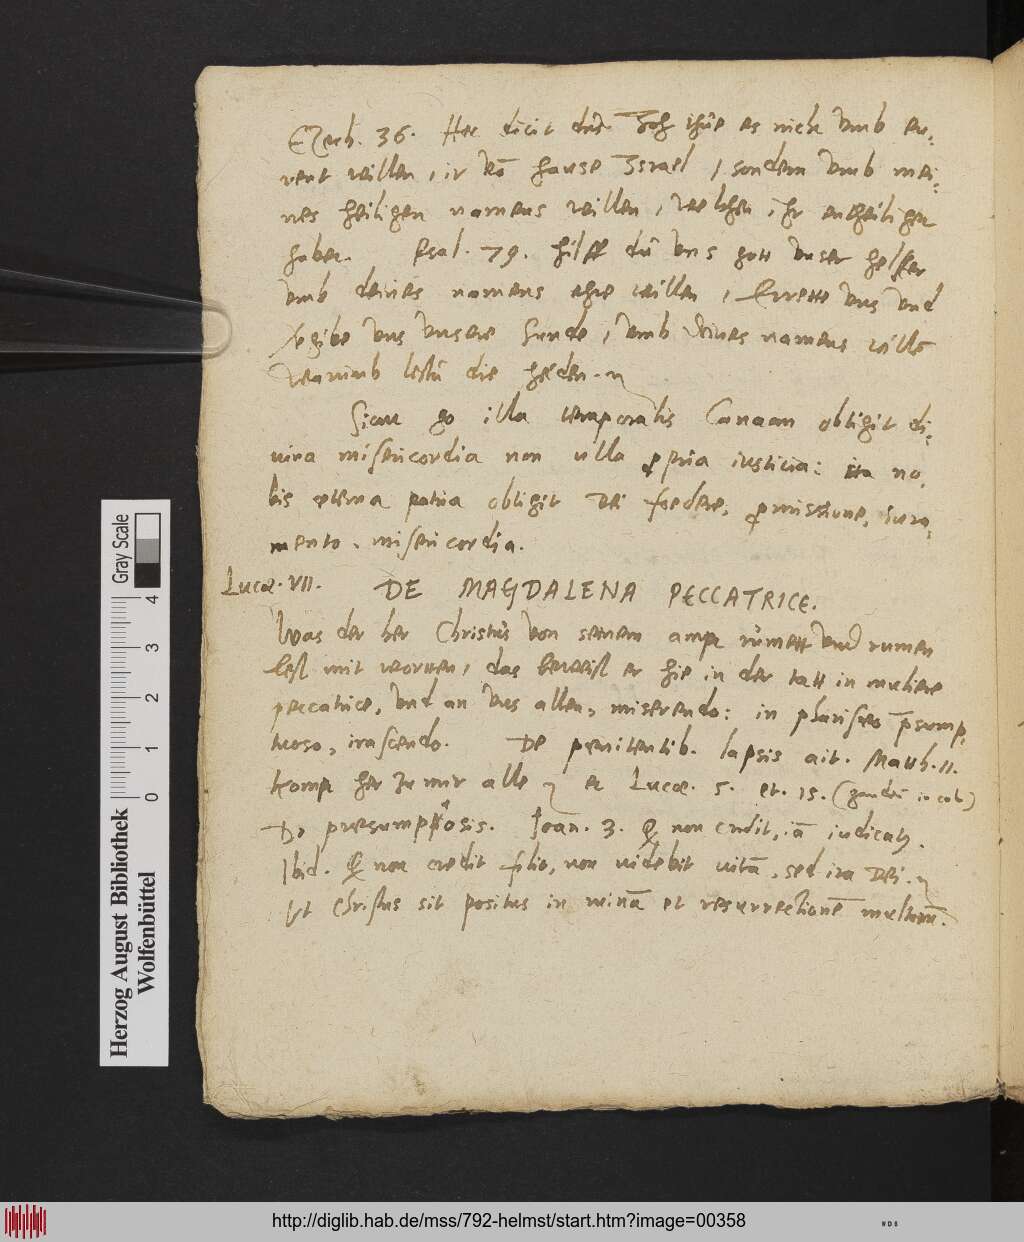 Ezech. 36. Hec dicit dns. Ich thue es nicht vmb eu-
rent willen, ir vō hause Israel, sondern vmb mei-
nes heiligen namens willen, welchen ihr entheiliget
habet. Psal. 79. Hilff du vns gott vnser helffer
vmb deines namens ehre willen, Errette vns vnd
vergibe vns vnsere sunde, vmb deines namens willē
warumb lestu die heiden.
Sicut go illa temporalis Canaan obtigit di-
uina misericordia non ulla ꝓpria iusticia: ita no-
bis eterna patria obtigit Dei foedere, ꝓmissione, iura-
mento, misericordia.
Lucæ. VII. DE MAGDALENA PECCATRICE.
Was der her Christus von seinem ampt rümett vnd rumen
lest mit worten, das beweist er hie in der tatt in muliere
peccatrice, vnd an vns allen, miserendo: in phariseo p̄sump-
tuoso, irascendo. De penitentib. lapsis ait. Matth. 11.
Kompt her zu mir alle et Lucæ. 5. et. 15. (gaudiū in cœlo)
De præsumptuosis. Joan. 3. Q non credit, iā iudicatꝰ.
Ibid. Q non credit filio, non uidebit uitā, sed ira Dei.
Vt Christus sit positus in ruinā et resurrectionē multorū.
Herzog August Bibliothek
Wolfenbüttel
Gray Scale
0 1 2 3 4
http://diglib.hab.de/mss/792-helmst/start.htm?image=00358
WDB